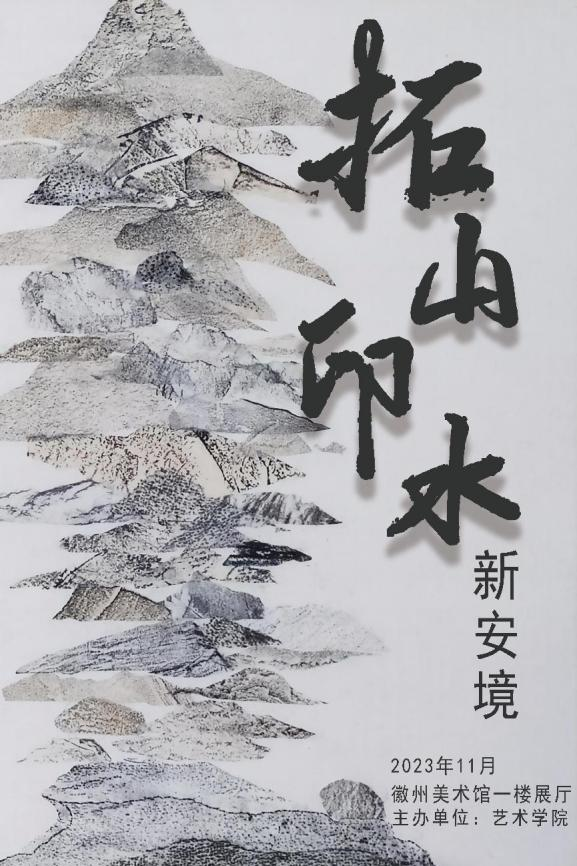 拓山印水
新安境
2023年11月
徽州美术馆一楼展厅
主办单位：艺术学院